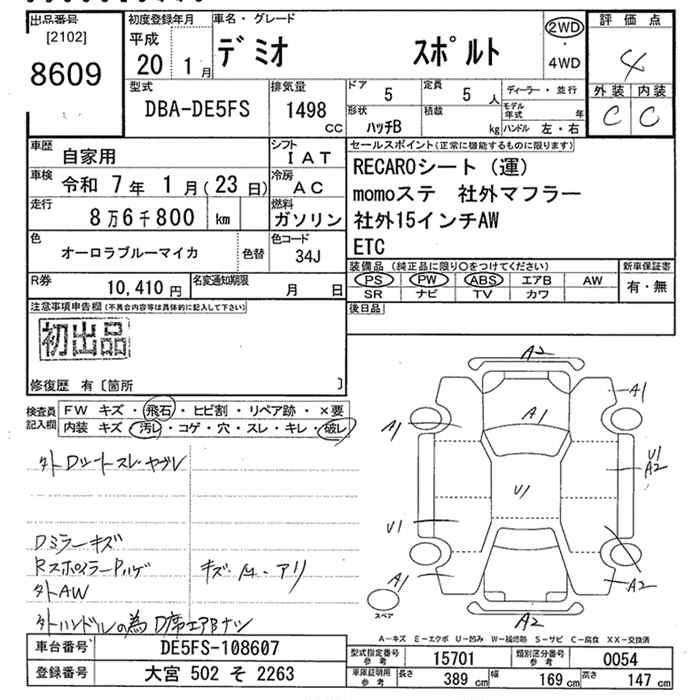 出品番号
[2102]
8609
初度登録年月
平成
20 1月
車名・グレード
デミオ スポルト
2WD
・
4WD
評価点
4
外装 内装
C C
型式
DBA-DE5FS
排気量
1498
CC
ドア
5
定員
5 人
ディーラー・並行
形状
ハッチB
積載
kg
モデル年式 年
ハンドル 左・右
車歴
自家用
シフト
IAT
車検
令和 7年 1月(23日)
冷房
AC
走行
8万6千800 km
燃料
ガソリン
色
オーロラブルーマイカ
色替
色コード
34J
R券
10,410円
名変通知期限
月 日
セールスポイント(正常に機能するものに限ります)
RECAROシート(運)
momoステ 社外マフラー
社外15インチAW
ETC
装備品(純正品に限り○をつけてください)
PS PW ABS エアB AW
SR ナビ TV カワ
新車保証書
有・無
後日品
注意事項申告欄(不具合内容等は具体的に記入して下さい)
初出品
修復歴 有〔箇所 〕
検査員記入欄
FW キズ・飛石・ヒビ割・リペア跡・×要
内装 キズ・汚レ・コゲ・穴・スレ・キレ・破レ
Dミラーキズ
キズ・凹・アリ
外AW
外ハンドルの為 D席エアBナシ
A2
A1
A1
A1
U1
A2
U1
U1
A1
A2
A2
スペア
A-キズ E-エクボ U-凹み W-補修跡 S-サビ C-腐食 XX-交換済
車台番号
DE5FS-108607
登録番号
大宮 502 そ 2263
型式指定番号
参考
15701
類別区分番号
参考
0054
車庫証明用
参考
長さ
389 cm
幅
169 cm
高さ
147 cm